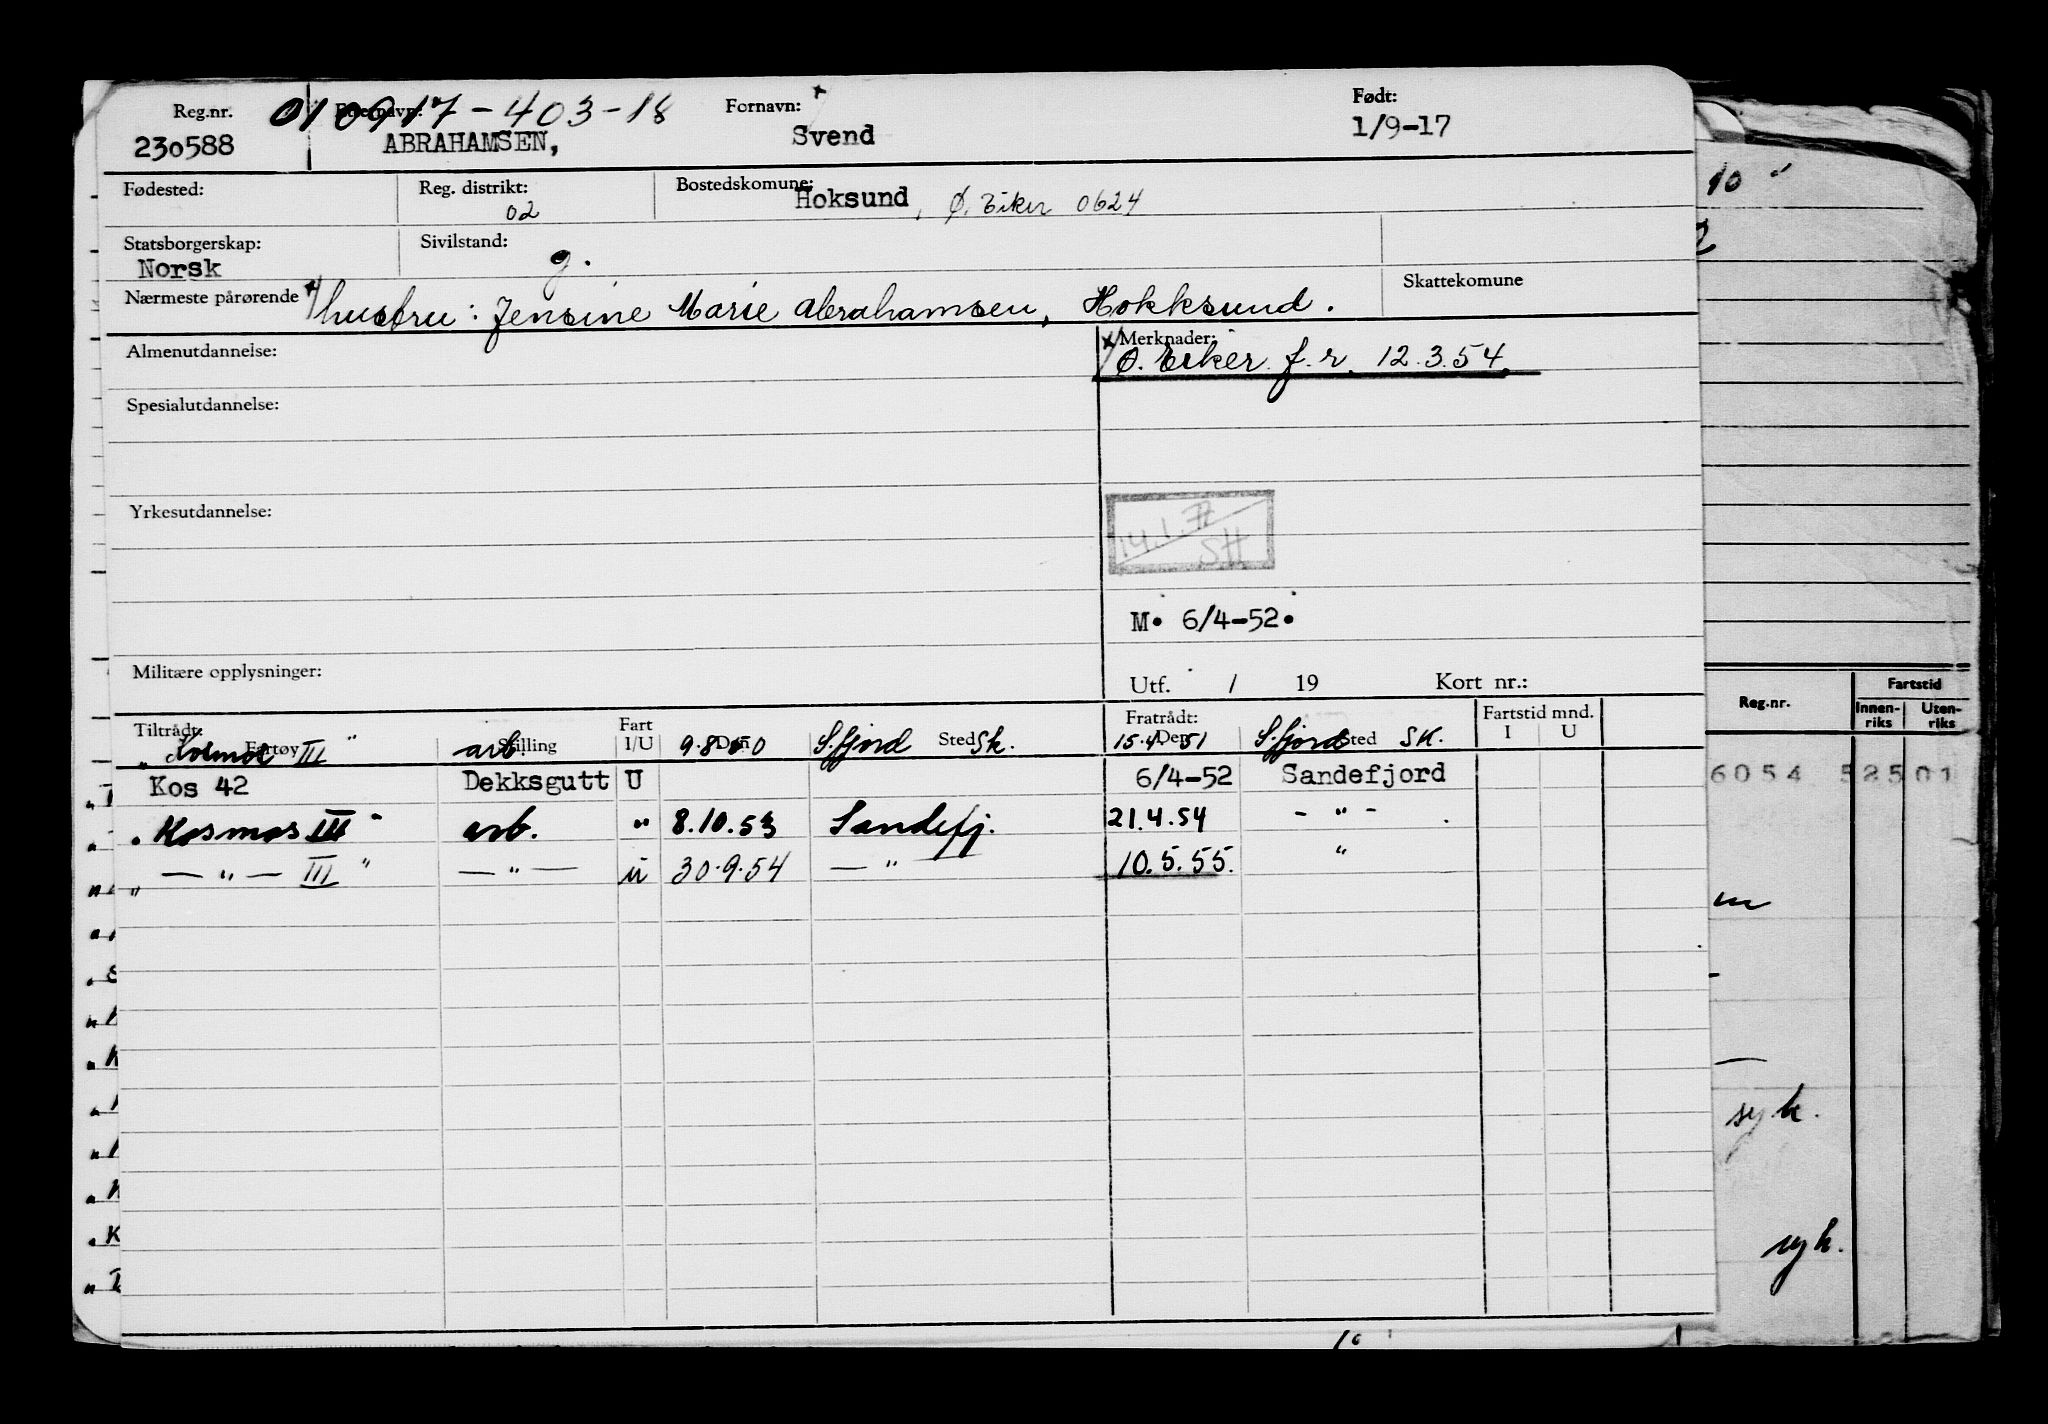 Reg.nr. 010917-403-18 Fornavn: Født:
230588 ABRAHAMSEN, Svend 1/9-17
Fødested: Reg. distrikt: 02 Bostedskomune: Hoksund, Ø. Eiker 0624
Statsborgerskap: Norsk Sivilstand: g.
Nærmeste pårørende hustru: Jensine Marie Abrahamsen, Hokksund. Skattekomune
Almenutdannelse: Merknader: Ø. Eiker f.r. 12.3.54.
Spesialutdannelse:
Yrkesutdannelse:
14.1.77
SH
M. 6/4-52.
Militære opplysninger: Utf. / 19 Kort nr.:
Tiltrådt: Fart Fratrådt: Fartstid mnd.
Fartøy Stilling I/U Den Sted Den Sted I U
III" arb. S.fjord Sk. 15.4.51 S.fjord SK.
Kos 42 Dekksgutt U 6/4-52 Sandefjord
"Kosmos III" arb. " 8.10.53 Sandefj. 21.4.54 - " -
" — " — III " — " — u 30.9.54 — " — 10.5.55. "
10"
Reg.nr. Fartstid
Innen-riks Uten-riks
6054 52501
syk.
syk.